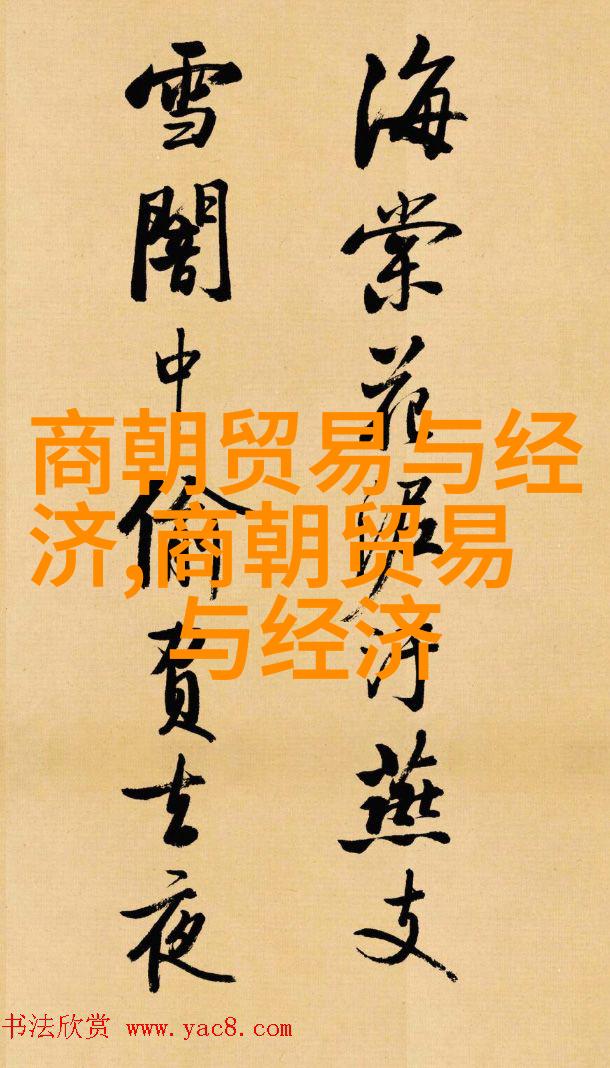 海棠花泥汙燕支
雪闇中偷負去夜
商朝贸易与经
济,商朝贸易
与经济
书法欣赏 www.yac8.com